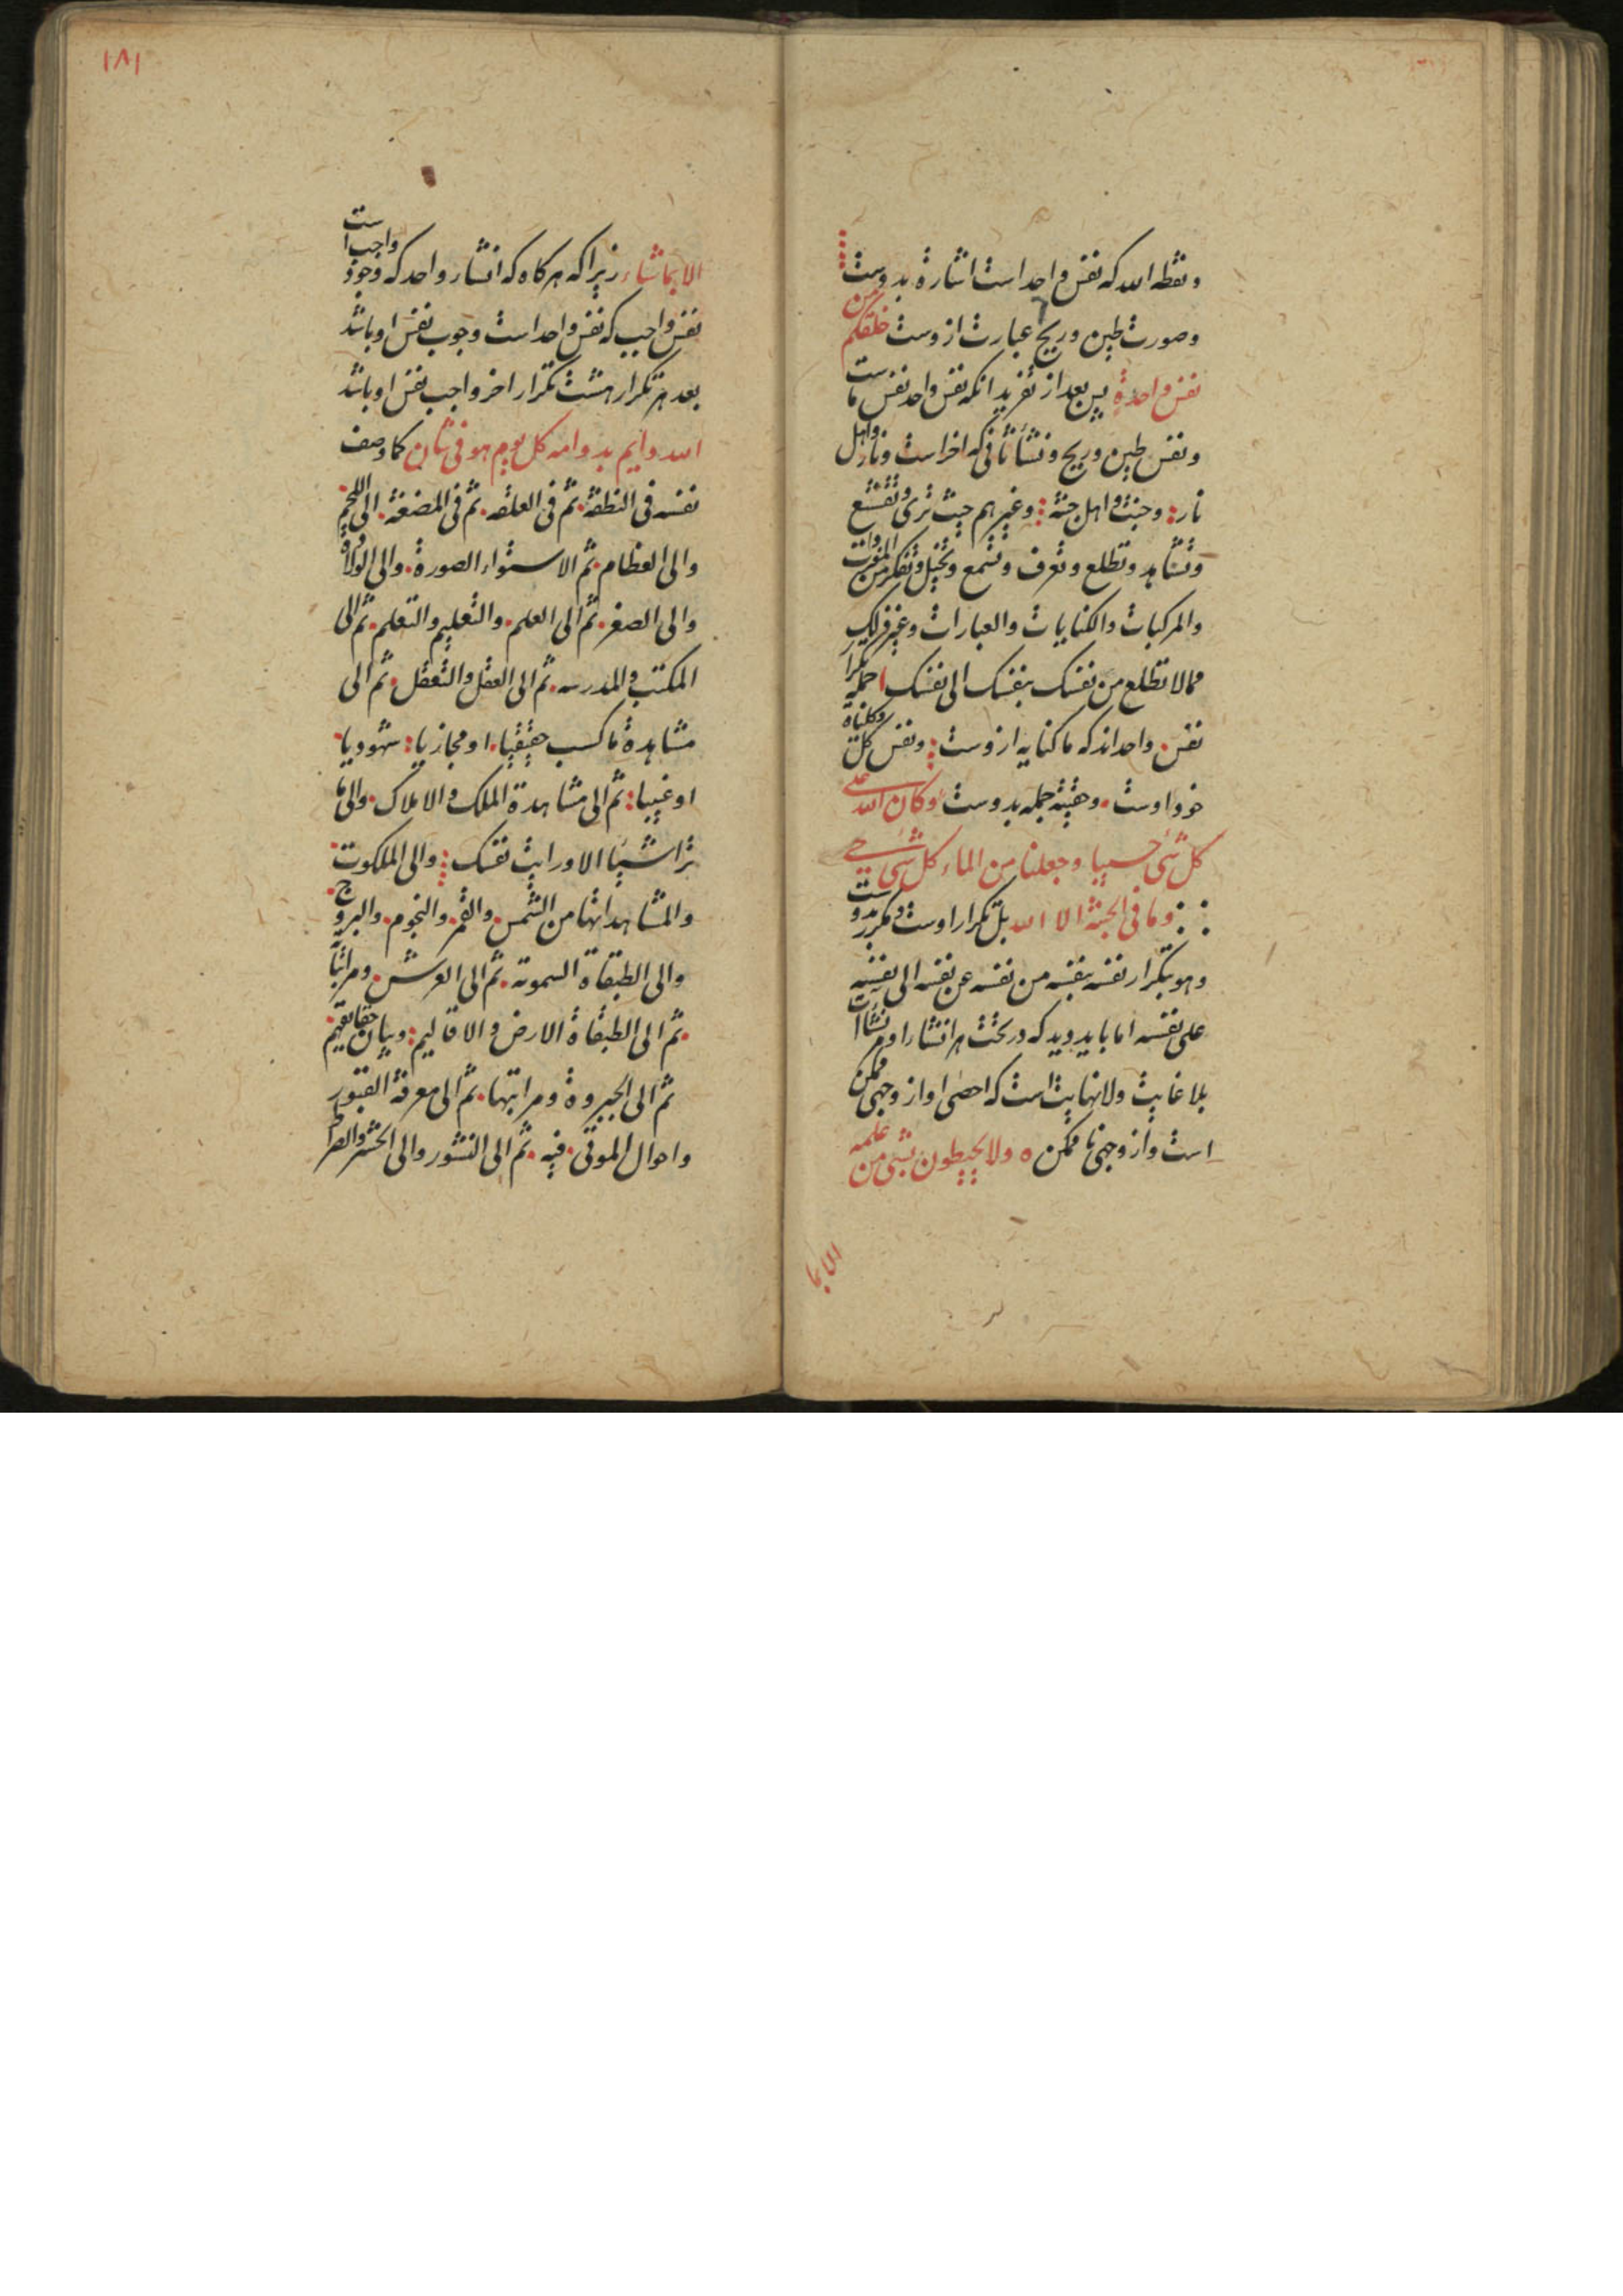 ونقطه الله که نفس واحد است اشارة بدوست
وصورت طین وریح عبارت ازوست خلقکم من
نفس واحدة پس بعد از تفرید انکه نفس واحد نفس ماست
ونفس طین وریح ونشأ ثانی که اخراست ونار واهل
نار وجنت واهل جنة وغیرهم حیث تری
وتشاهد وتطلع وتعرف وتسمع وتخیل وتفکر من المفردات
والمرکبات والکنایات والعبارات وغیر ذلک
مما لا تطلع من نفسک بنفسک الی نفسک جمله تکرار
نفس واحداند که ما کنایه ازوست ونفس کل وکلیاة
خود اوست وحقیقة جمله بدوست وکان الله علی
کل شئ حسیبا وجعلنا من الماء کل شئ حی
وما فی الجنة الا الله بل تکرار اوست ومکرر بدوست
وهو بتکرار نفسه بنفسه من نفسه عن نفسه الی نفسه
علی نفسه اما باید دید که در تحت هر انشار اوهم نشاات
بلا غایت ولا نهایت است که احصی او از وجهی ممکن
است واز وجهی نا ممکن ه ولا یحیطون بشئ من علمه
الا بما
۱۸۱
الا بماشاء زیرا که هرکاه که انشار واحد که وجود واجب است
نفس واجب که نفس واحد است وجوب نفس او باشد
بعد هر تکرار هشت تکرار اخر واجب نفس او باشد
الله دایم بدوامه کل یوم هو فی شان کما وصف
نفسه فی النطفة ثم فی العلقه ثم فی المضغة الی اللحم
والی العظام ثم الاستواء الصورة والی الولادة
والی الصغر ثم الی العلم والتعلیم والتعلم ثم الی
المکتب والمدرسه ثم الی العقل والتعقل ثم الی
مشاهدة ما کسب حقیقیا او مجازیا شهودیا
او غیبیا ثم الی مشاهدة الملک والاملاک والی ما
تراشیئا الا ورایت نفسک والی الملکوت
والمشاهداتها من الشمس والقمر والنجوم والبروج
والی الطبقاة السموته ثم الی العرش ومراتبها
ثم الی الطبقاة الارض والاقالیم وبیان حقایقهم
ثم الی الجبروة ومراتبها ثم الی معرفة القبور
واحوال الموتی فیه ثم الی النشور والی الحشر والصراط